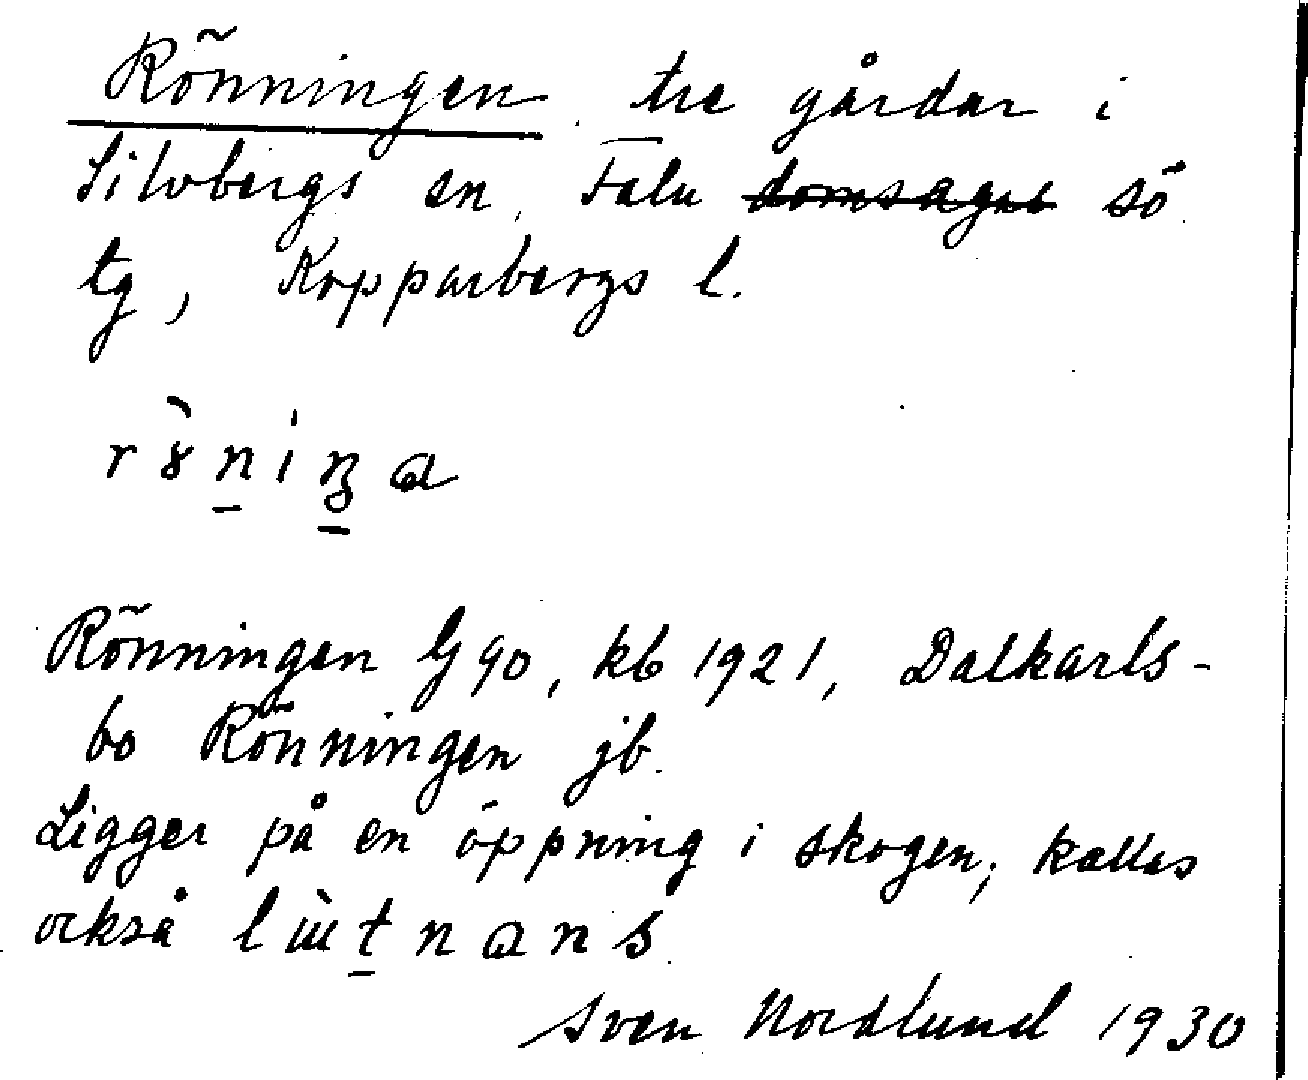 Rönningen tre gårdar i
Silvbergs sn, Falu domsagas sö
tg, Kopparbergs l.
Rönningen G 90, kb 1921, Dalkarls-
bo Rönningen jb.
Ligger på en öppning i skogen; kallas
också
Sven Nordlund 1930